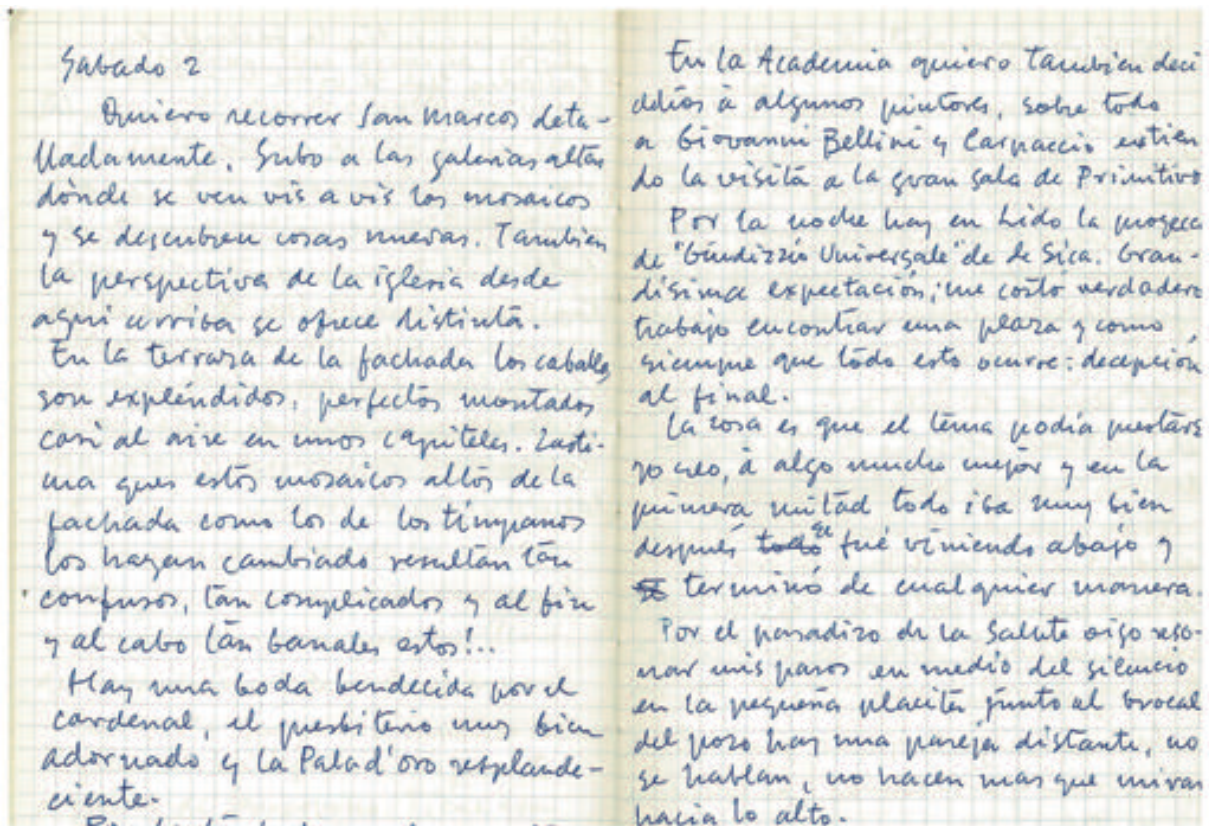 Sabado 2
Quiero recorrer San Marcos deta-
lladamente. Subo a las galerias altas
dònde se ven vis a vis los mosaicos
y se descubren cosas nuevas. Tambien
la perspectiva de la iglesia desde
aqui arriba se ofrece distinta.
En la terraza de la fachada los caballos
son expléndidos, perfectos montados
casi al aire en unos capiteles. Lasti-
ma que estos mosaicos altos de la
fachada como los de los tímpanos
los hayan cambiado resultan tan
confusos, tan complicados y al fin
y al cabo tan banales estos!..
Hay una boda bendecida por el
cardenal, el presbiterio muy bien
adornado y la Pala d'oro resplande-
ciente.
En la Academia quiero tambien deci
adios à algunos pintores, sobre todo
a Giovanni Bellini y Carpaccio extien
do la visita a la gran sala de Primitivo
Por la noche hay en Lido la proyecc
de "Giudizzio Universale" de de Sica. Gran-
disima expectación; me costo verdadero
trabajo encontrar una plaza y como
siempre que todo esto ocurre: decepción
al final.
La cosa es que el tema podia prestars
yo creo, à algo mucho mejor y en la
primera mitad todo iba muy bien
después todo se fué viniendo abajo y
terminó de cualquier manera.
Por el paradizo de la Salute oigo reso-
nar mis pasos en medio del silencio
en la pequeña placita junto al brocal
del pozo hay una pareja distante, no
se hablan, no hacen mas que mirar
hacia lo alto.